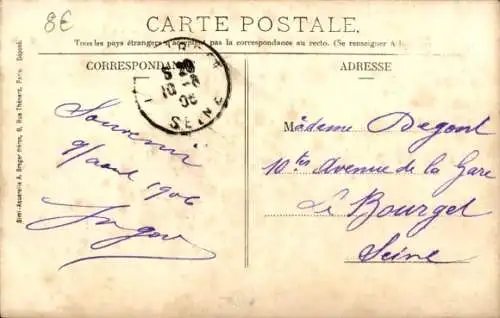 8€
CARTE POSTALE
Tous les pays étrangers n'acceptent pas la correspondance au recto. (Se renseigner à l
CORRESPONDAN
ADRESSE
SEINE
Souvenir
9 août 1906
Madame Dagont
10 ter Avenue de la Gare
Le Bourget
Seine
Simi-Aquarelle A. Breger frères, 9, Rue Thénard, Paris. Déposé.